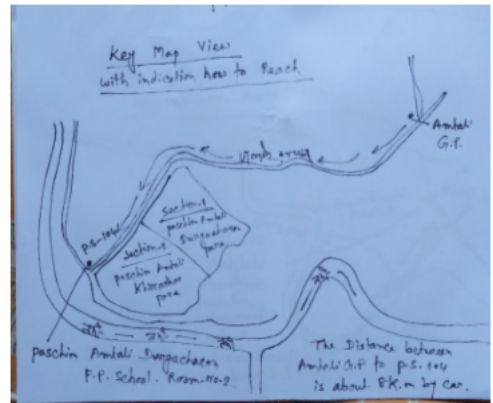 Key Map View
with indication how to Reach
Amtali
G.P.
P.S-104
Section-1
paschim Amtali
Durgacharan
para
Section-2
paschim Amtali
para
paschim Amtali Durgacharan
F.P. School. Room-no-2.
The Distance between
Amtali G.P to p.s-104
is about 8K.m by car.